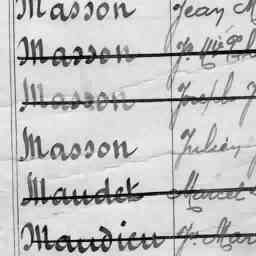 Masson Jean M
Masson
Masson Joseph J
Masson Julien
Maudet Marcel
Maudieu Mar